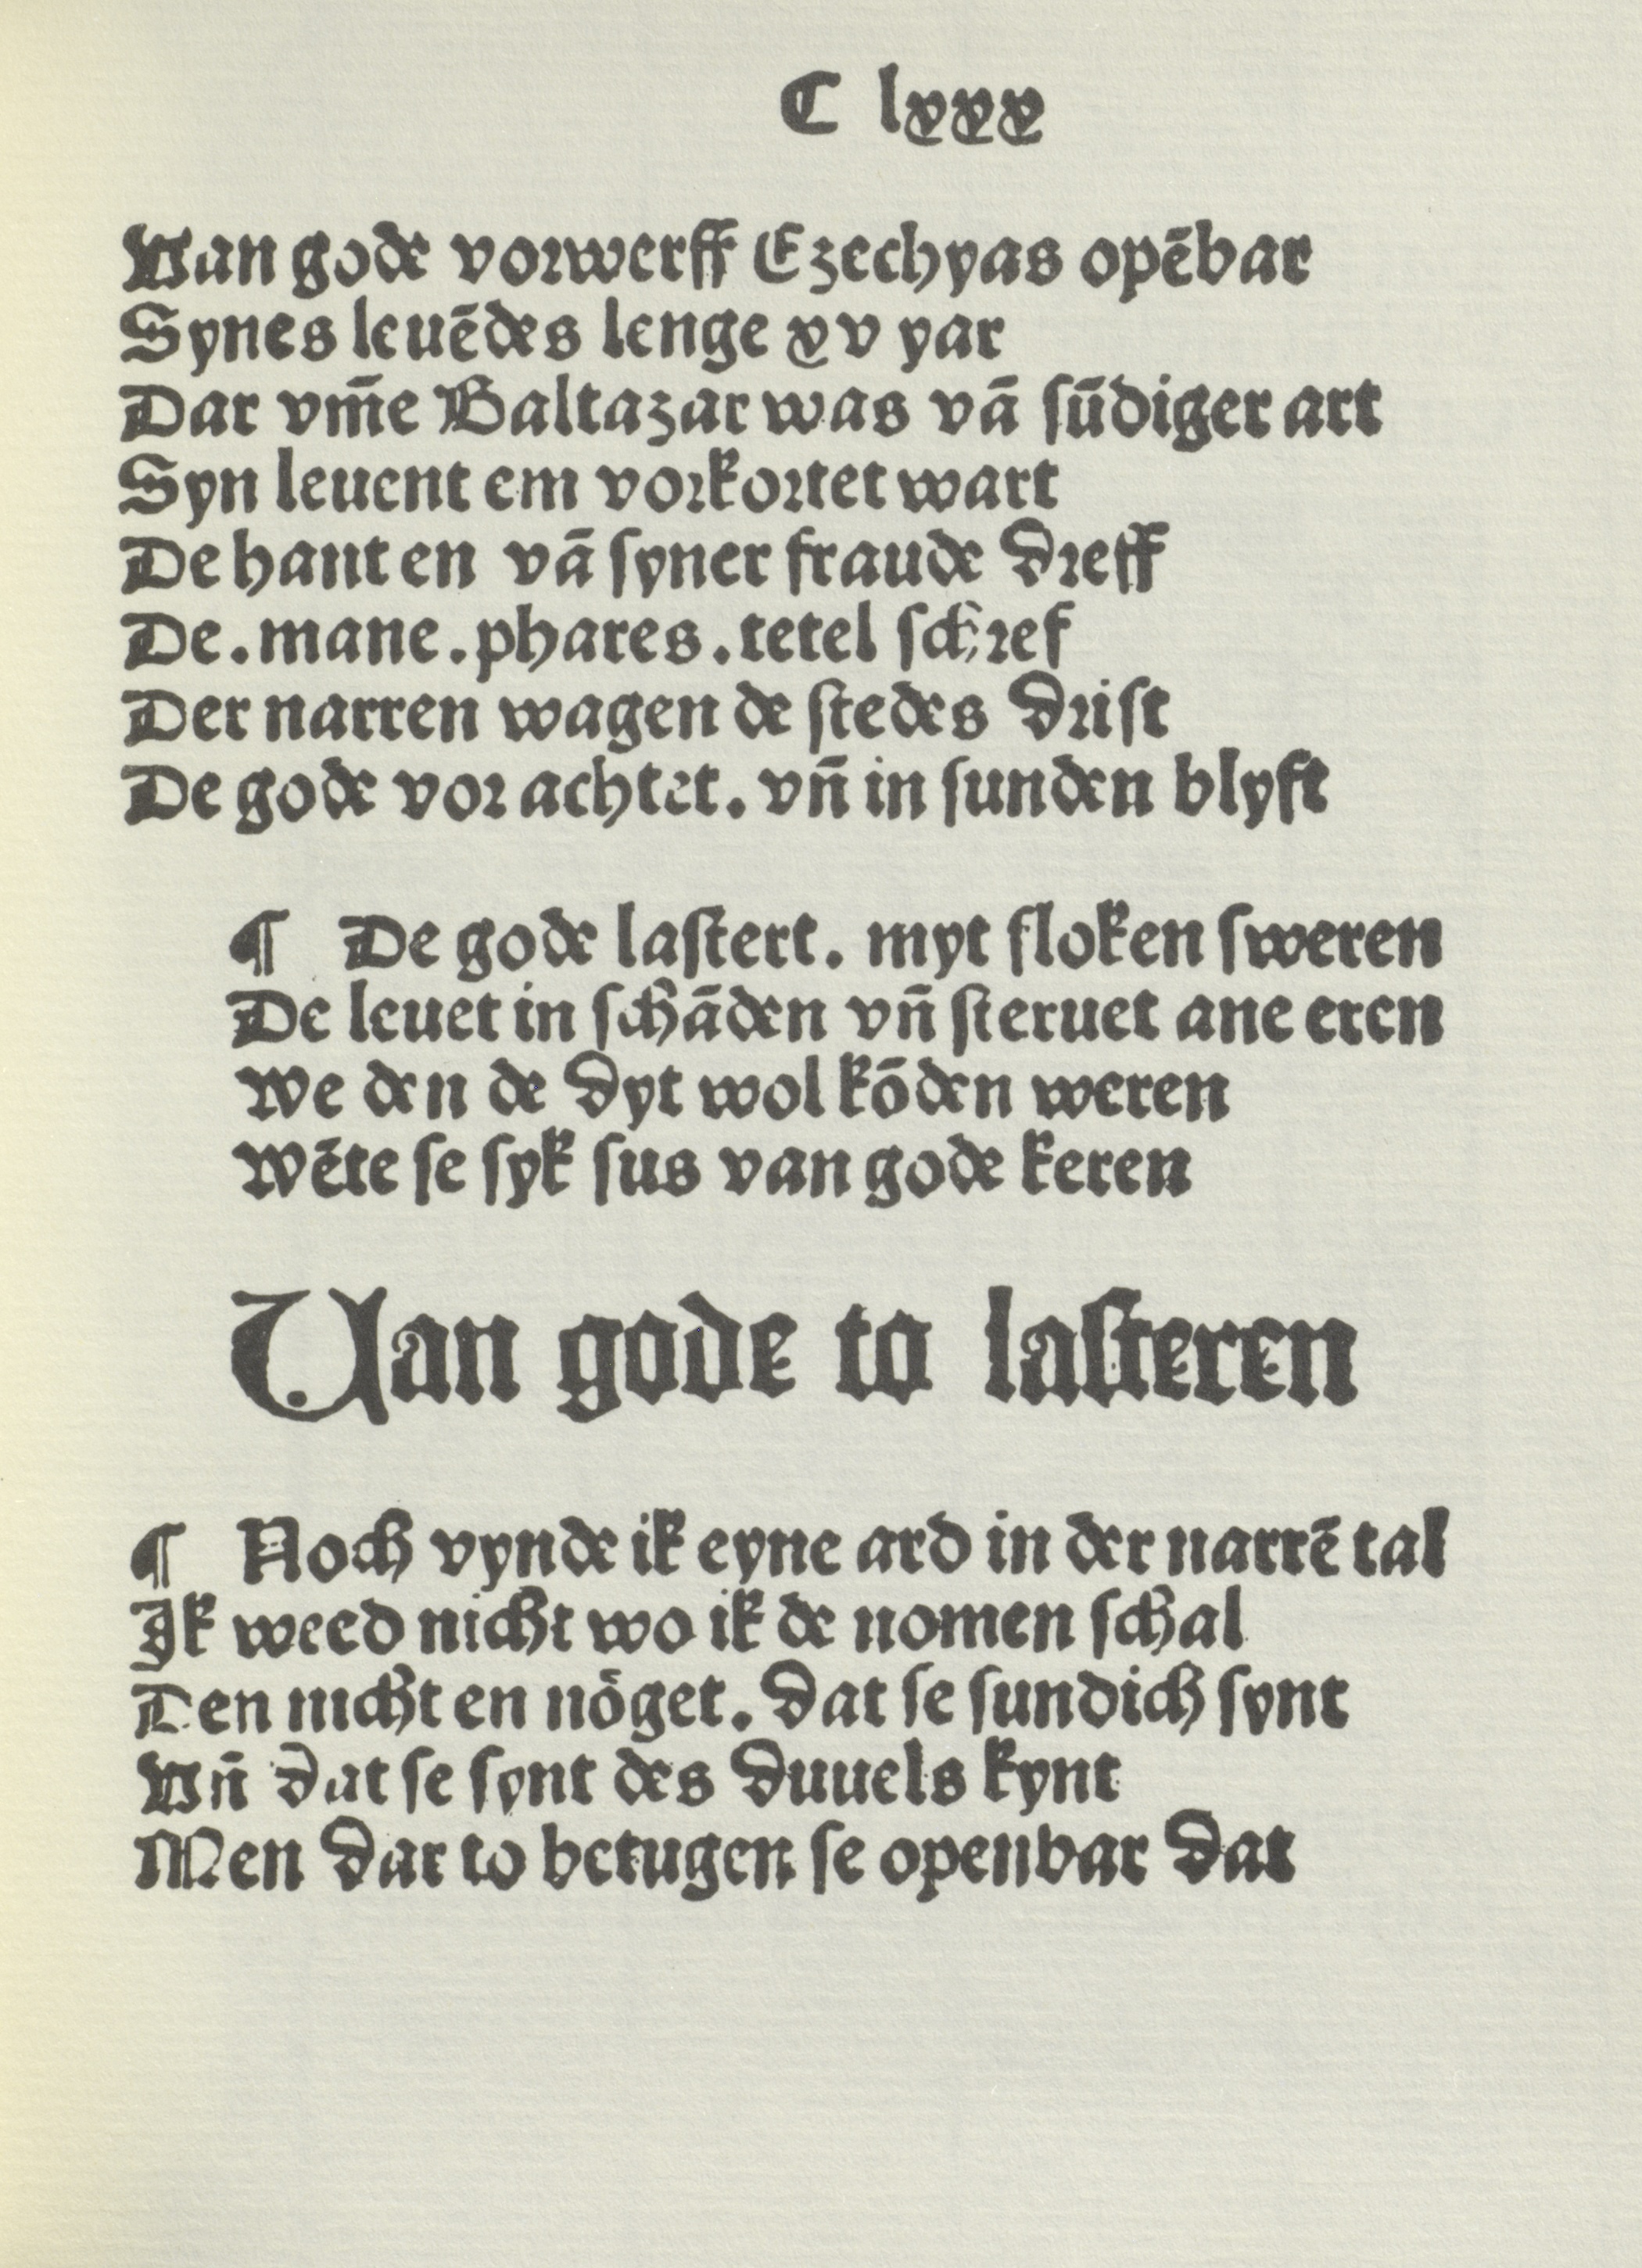 C lxxx
Van gode vorwerff Ezechyas opēbar
Synes leuēdes lenge xv yar
Dar vm̄e Baltazar was vā ſūdiger art
Syn leuent em vorkortet wart
De hant en vā ſyner fraude dreff
De.mane.phares.tetel ſchref
Der narren wagen de ſtedes driſt
De gode vor achtet. vn̄ in ſunden blyft
¶ De gode laſtert. myt floken ſweren
De leuet in ſchāden vn̄ ſteruet ane eren
We den de dyt wol kōden weren
Wēte ſe ſyk ſus van gode keren
Uan gode to laſteren
¶ Noch vynde ik eyne ard in der narrē tal
Ik weed nicht wo ik de nomen ſchal
Den nicht en nöget. dat ſe ſundich ſynt
Vn̄ dat ſe ſynt des duuels kynt
Men dar to betugen ſe openbar dat